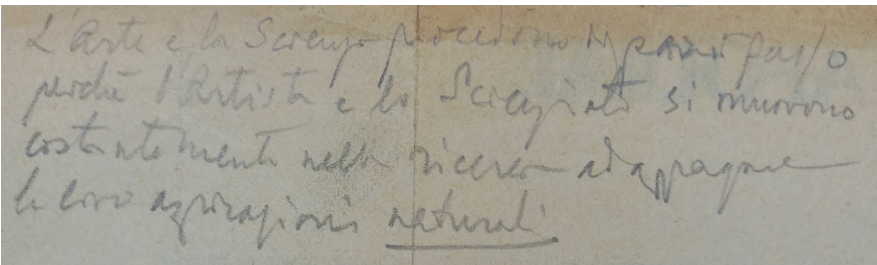 L'Arte e la Scienza procedono di pari passo
perché l'Artista e lo Scienziato si muovono
costantemente nella ricerca ad appagare
le loro aspirazioni naturali